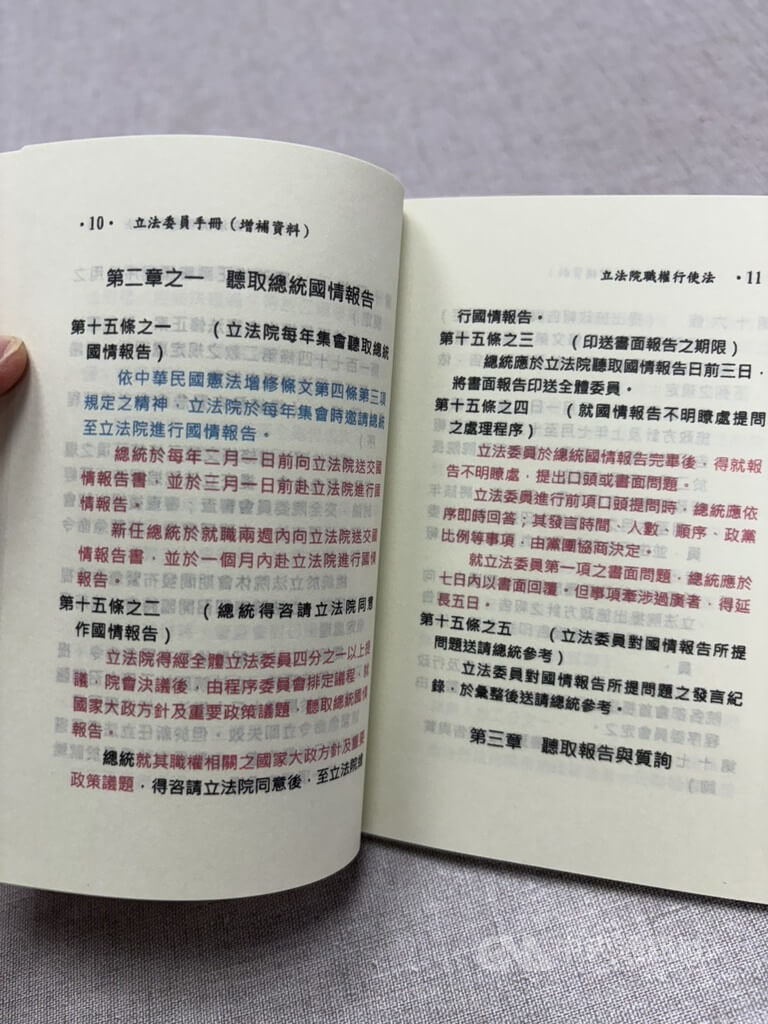 ·10· 立法委員手冊(增補資料)
第二章之一 聽取總統國情報告
第十五條之一 (立法院每年集會聽取總統
國情報告)
依中華民國憲法增修條文第四條第三項
規定之精神,立法院於每年集會時邀請總統
至立法院進行國情報告。
總統於每年二月一日前向立法院送交國
情報告書,並於三月一日前赴立法院進行國
情報告。
新任總統於就職兩週內向立法院送交國
情報告書,並於一個月內赴立法院進行國情
報告。
第十五條之二 (總統得咨請立法院同意
作國情報告)
立法院得經全體立法委員四分之一以上提
議,院會決議後,由程序委員會排定議程,就
國家大政方針及重要政策議題,聽取總統國情
報告。
總統就其職權相關之國家大政方針及重要
政策議題,得咨請立法院同意後,至立法院進
立法院職權行使法 ·11
行國情報告。
第十五條之三 (印送書面報告之期限)
總統應於立法院聽取國情報告日前三日,
將書面報告印送全體委員。
第十五條之四 (就國情報告不明瞭處提問
之處理程序)
立法委員於總統國情報告完畢後,得就報
告不明瞭處,提出口頭或書面問題。
立法委員進行前項口頭提問時,總統應依
序即時回答;其發言時間、人數、順序、政黨
比例等事項,由黨團協商決定。
就立法委員第一項之書面問題,總統應於
七日內以書面回覆。但事項牽涉過廣者,得延
長五日。
第十五條之五 (立法委員對國情報告所提
問題送請總統參考)
立法委員對國情報告所提問題之發言紀
錄,於彙整後送請總統參考。
第三章 聽取報告與質詢